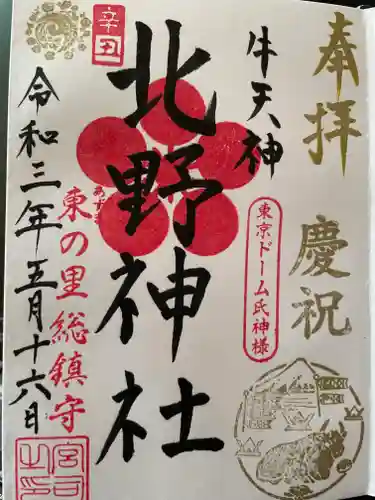 奉拝
慶祝
牛天神
東京ドーム氏神様
北野神社
辛丑
あずま
東の里総鎮守
令和三年五月十六日